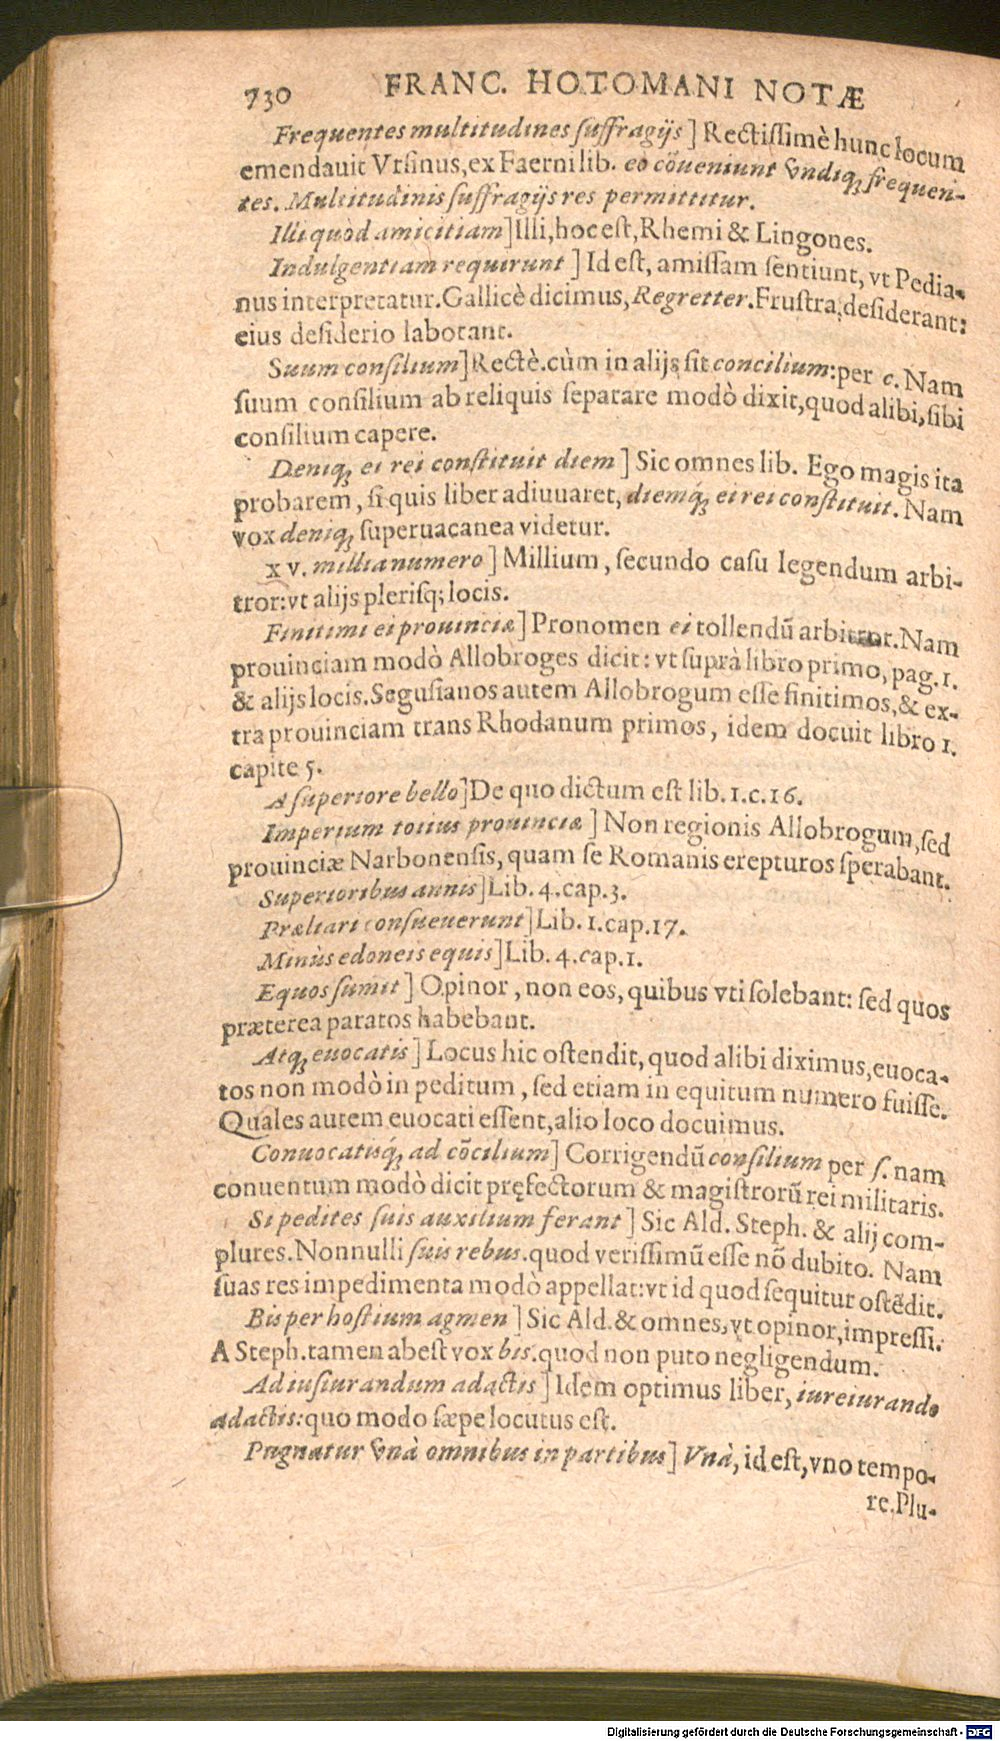 730 FRANC. HOTOMANI NOTÆ
Frequentes multitudines ſuffragijs] Rectiſſimè hunc locum
emendauit Vrſinus, ex Faerni lib. eo cōueniunt vndiq; frequen-
tes. Multitudinis ſuffragijs res permittitur.
Illi quòd amicitiam] Illi, hoc eſt, Rhemi & Lingones.
Indulgentiam requirunt] Id eſt, amiſſam ſentiunt, vt Pedia-
nus interpretatur. Gallicè dicimus, Regretter. Fruſtra, deſiderant:
eius deſiderio laborant.
Suum conſilium] Rectè. cùm in alijs ſit concilium: per c. Nam
ſuum conſilium ab reliquis ſeparare modò dixit, quod alibi, ſibi
conſilium capere.
Deniq; ei rei conſtituit diem] Sic omnes lib. Ego magis ita
probarem, ſi quis liber adiuuaret, diemq́; ei rei conſtituit. Nam
vox deniq; ſuperuacanea videtur.
xv. millia numero] Millium, ſecundo caſu legendum arbi-
tror: vt alijs pleriſq; locis.
Finitimi ei prouinciæ] Pronomen ei tollendū arbitror. Nam
prouinciam modò Allobroges dicit: vt ſuprà libro primo, pag. 1.
& alijs locis. Seguſianos autem Allobrogum eſſe finitimos, & ex-
tra prouinciam trans Rhodanum primos, idem docuit libro 1.
capite 5.
A ſuperiore bello] De quo dictum eſt lib. 1. c. 16.
Imperium totius prouinciæ] Non regionis Allobrogum, ſed
prouinciæ Narbonenſis, quam ſe Romanis erepturos ſperabant.
Superioribus annis] Lib. 4. cap. 3.
Præliari conſueuerunt] Lib. 1. cap. 17.
Minùs edoneis equis] Lib. 4. cap. 1.
Equos ſumit] Opinor, non eos, quibus vti ſolebant: ſed quos
præterea paratos habebant.
Atq; euocatis] Locus hic oſtendit, quod alibi diximus, euoca-
tos non modò in peditum, ſed etiam in equitum numero fuiſſe.
Quales autem euocati eſſent, alio loco docuimus.
Conuocatisq́; ad cōcilium] Corrigendū conſilium per ſ. nam
conuentum modò dicit pręfectorum & magiſtrorū rei militaris.
Si pedites ſuis auxilium ferant] Sic Ald. Steph. & alij com-
plures. Nonnulli ſuis rebus. quod veriſſimū eſſe nō dubito. Nam
ſuas res impedimenta modò appellat: vt id quod ſequitur oſtēdit.
Bis per hoſtium agmen] Sic Ald. & omnes, vt opinor, impreſſi.
A Steph. tamen abeſt vox bis. quod non puto negligendum.
Ad iuſiurandum adactis] Idem optimus liber, iureiurando
adactis: quo modo ſæpe locutus eſt.
Pugnatur vnà omnibus in partibus] Vnà, id eſt, vno tempo-
re. Plu-
Digitalisierung gefördert durch die Deutsche Forschungsgemeinschaft - DFG